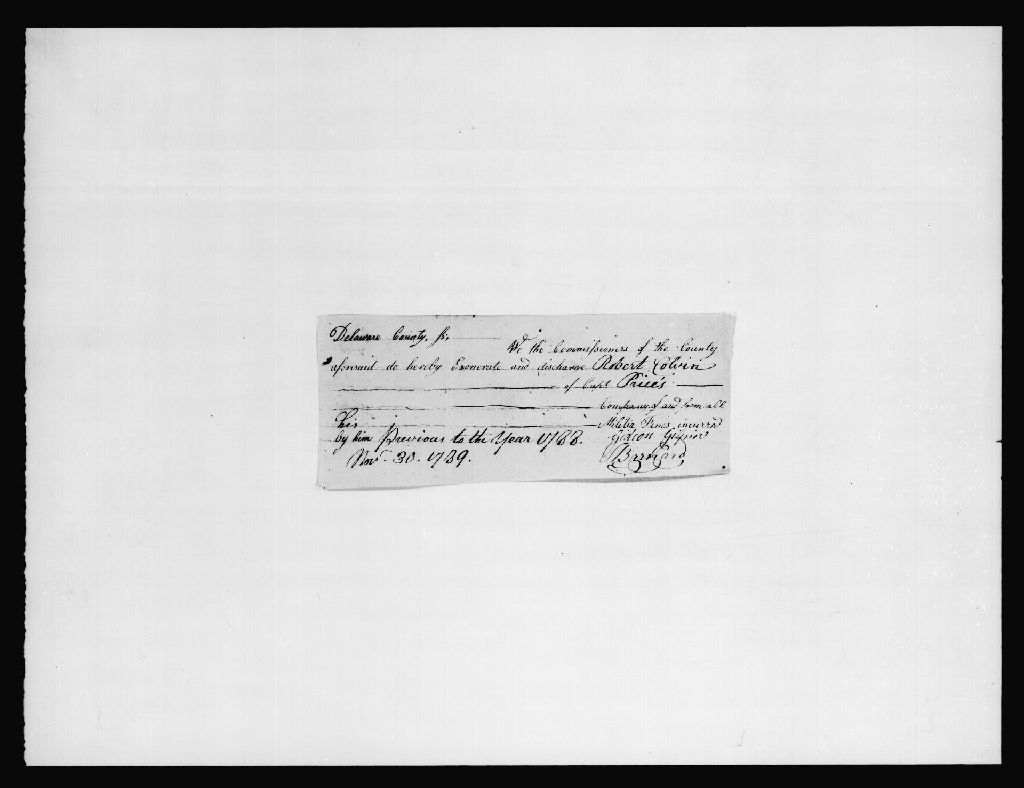 Delaware County, ss.
We the Commissioners of the County
aforesaid do hereby Exonerate and discharge Robert Colvin
of Capt. Price's
Company of and from all
His Militia Fines incurrd
by him previous to the Year 1788. Gideon
Novr. 30. 1789.